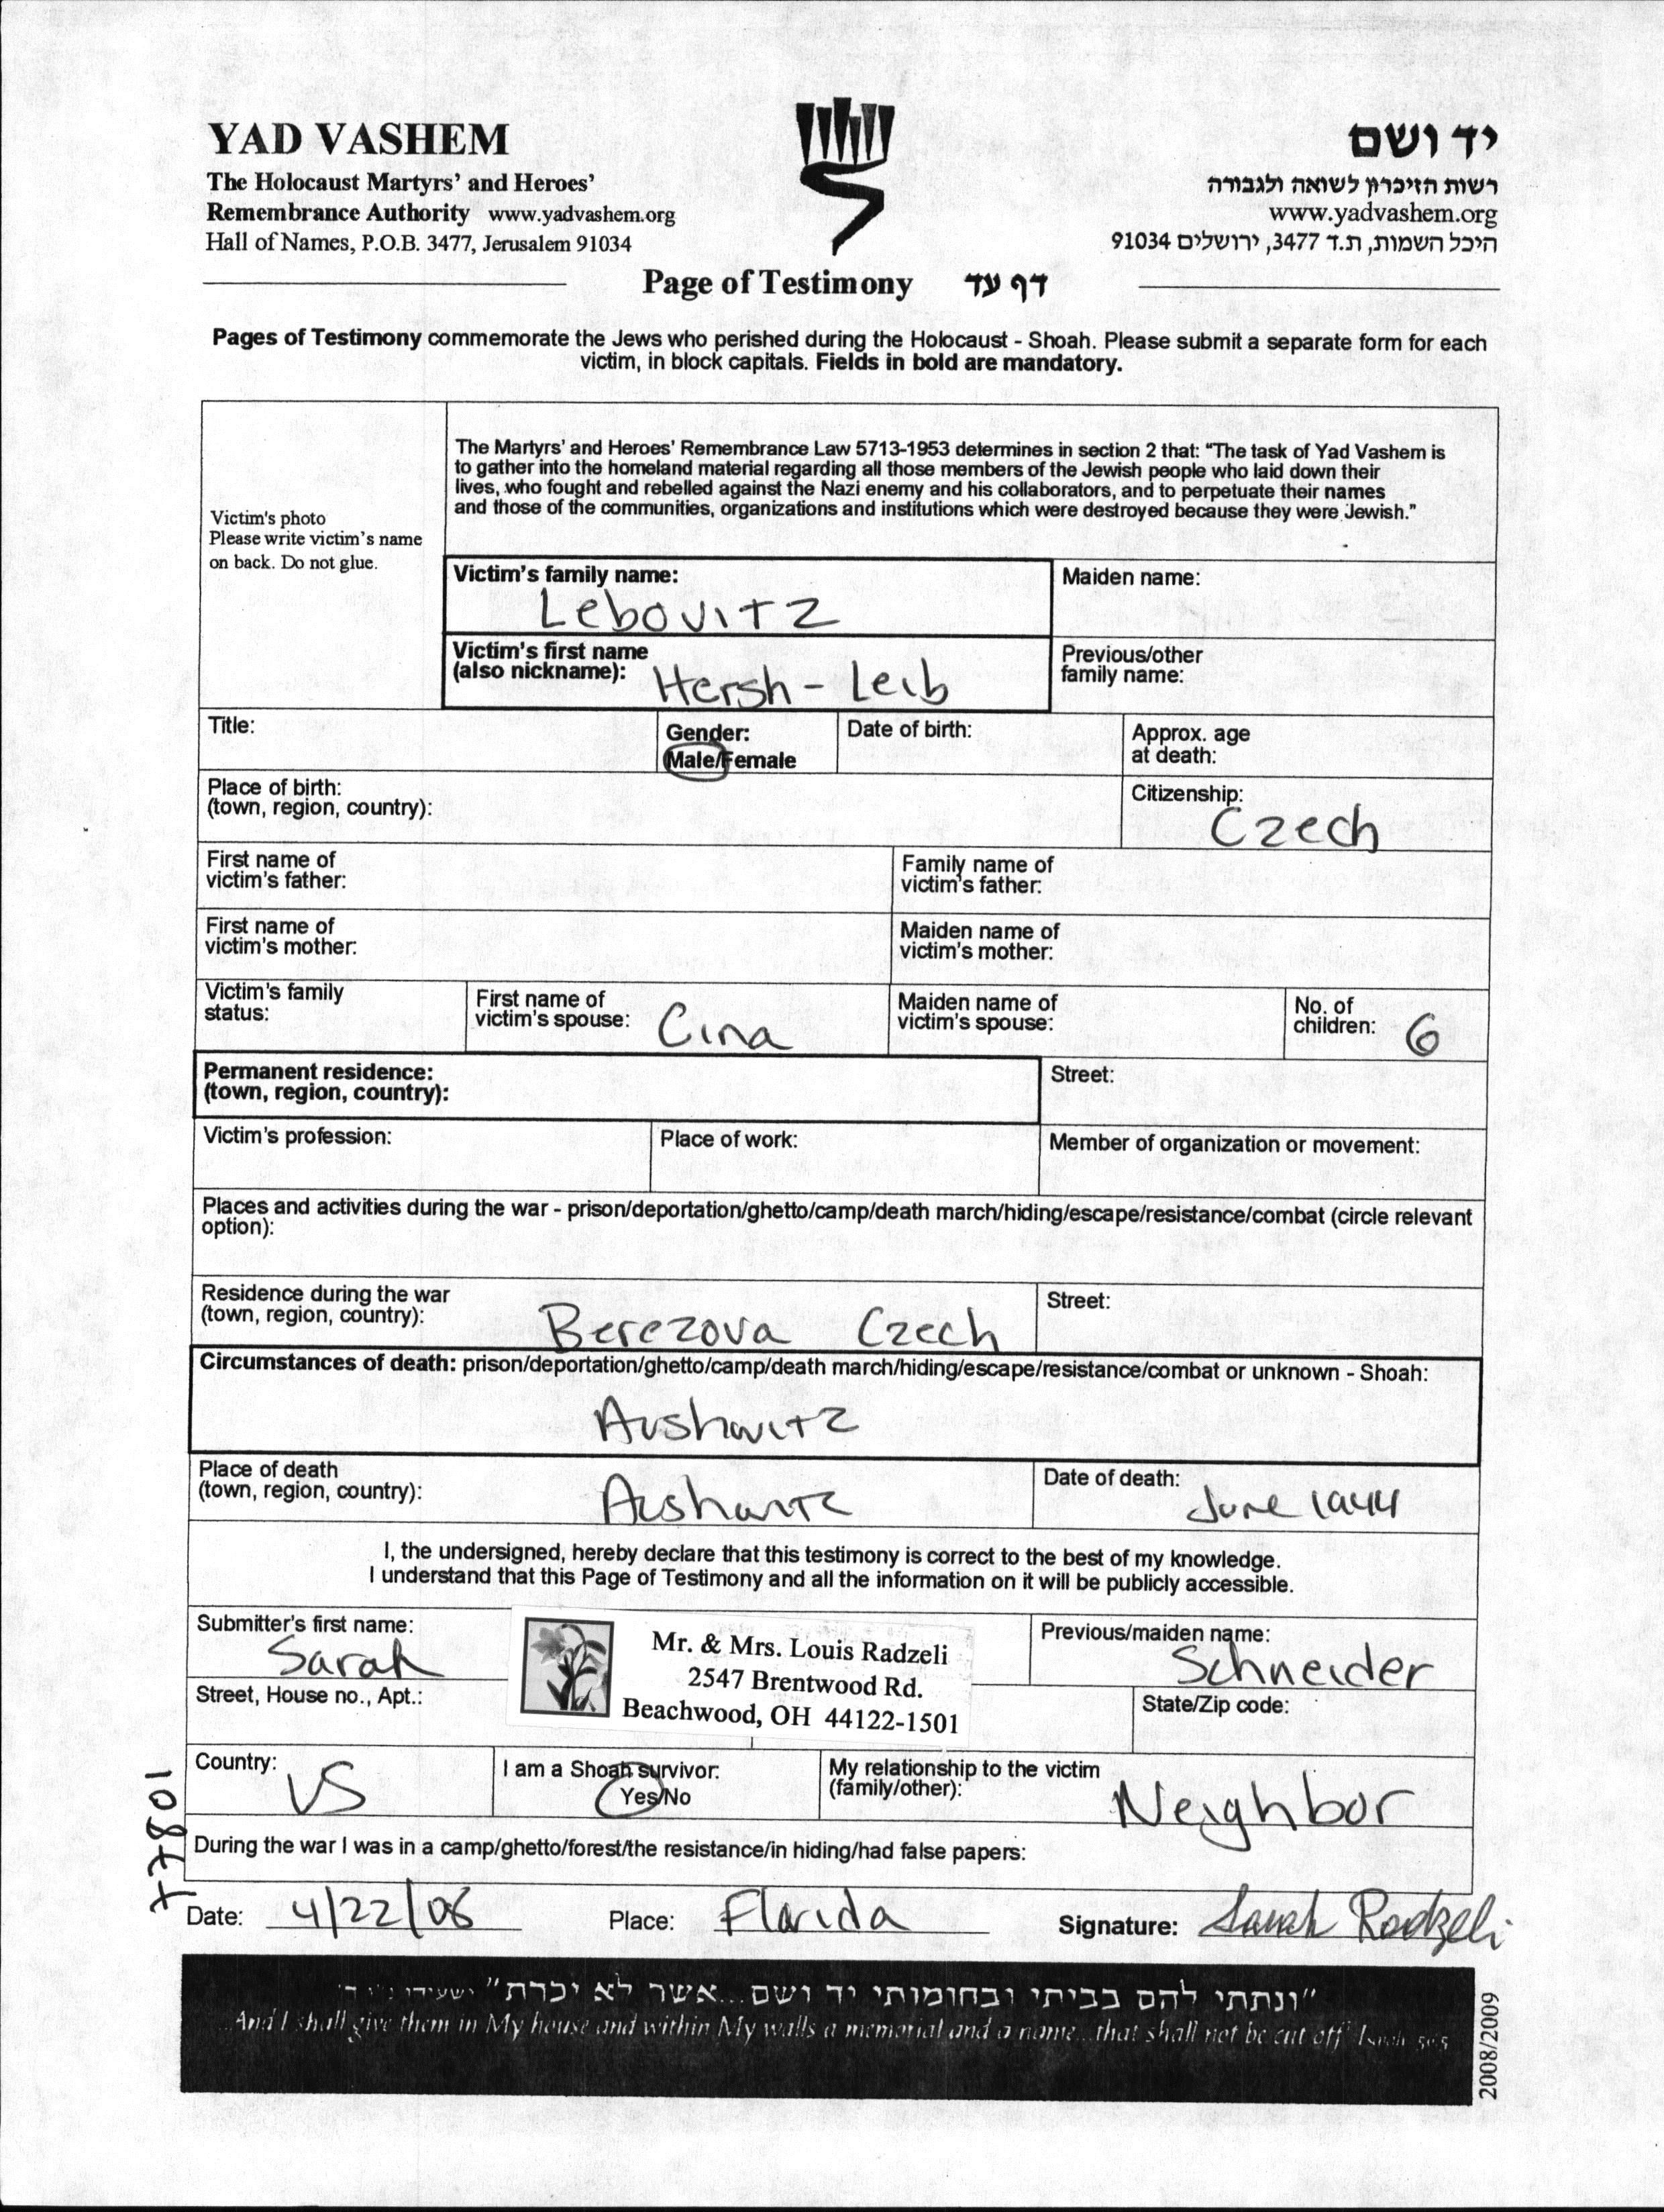 YAD VASHEM
The Holocaust Martyrs' and Heroes'
Remembrance Authority www.yadvashem.org
Hall of Names, P.O.B. 3477, Jerusalem 91034
יד ושם
רשות הזיכרון לשואה ולגבורה
www.yadvashem.org
היכל השמות, ת.ד 3477, ירושלים 91034
Page of Testimony דף עד
Pages of Testimony commemorate the Jews who perished during the Holocaust - Shoah. Please submit a separate form for each
victim, in block capitals. Fields in bold are mandatory.
Victim's photo
Please write victim's name
on back. Do not glue.
The Martyrs' and Heroes' Remembrance Law 5713-1953 determines in section 2 that: "The task of Yad Vashem is
to gather into the homeland material regarding all those members of the Jewish people who laid down their
lives, who fought and rebelled against the Nazi enemy and his collaborators, and to perpetuate their names
and those of the communities, organizations and institutions which were destroyed because they were Jewish."
Victim's family name:
Lebovitz
Maiden name:
Victim's first name
(also nickname): Hersh - Leib
Previous/other
family name:
Title:
Gender:
Male/Female
Date of birth:
Approx. age
at death:
Place of birth:
(town, region, country):
Citizenship:
Czech
First name of
victim's father:
Family name of
victim's father:
First name of
victim's mother:
Maiden name of
victim's mother:
Victim's family
status:
First name of
victim's spouse: Cina
Maiden name of
victim's spouse:
No. of
children: 6
Permanent residence:
(town, region, country):
Street:
Victim's profession:
Place of work:
Member of organization or movement:
Places and activities during the war - prison/deportation/ghetto/camp/death march/hiding/escape/resistance/combat (circle relevant
option):
Residence during the war
(town, region, country): Berezova Czech
Street:
Circumstances of death: prison/deportation/ghetto/camp/death march/hiding/escape/resistance/combat or unknown - Shoah:
Aushwitz
Place of death
(town, region, country): Aushwitz
Date of death:
June 1944
I, the undersigned, hereby declare that this testimony is correct to the best of my knowledge.
I understand that this Page of Testimony and all the information on it will be publicly accessible.
Submitter's first name:
Sarah
Mr. & Mrs. Louis Radzeli
2547 Brentwood Rd.
Beachwood, OH 44122-1501
Previous/maiden name:
Schneider
Street, House no., Apt.:
State/Zip code:
Country:
US
I am a Shoah survivor:
Yes/No
My relationship to the victim
(family/other): Neighbor
During the war I was in a camp/ghetto/forest/the resistance/in hiding/had false papers:
Date: 4/22/06 Place: Florida Signature: Sarah Radzeli
"ונתתי להם בביתי ובחומותי יד ושם...אשר לא יכרת"
And I shall give them in My house and within My walls a memorial and a name...that shall not be cut off" Isaiah 56:5
2008/2009